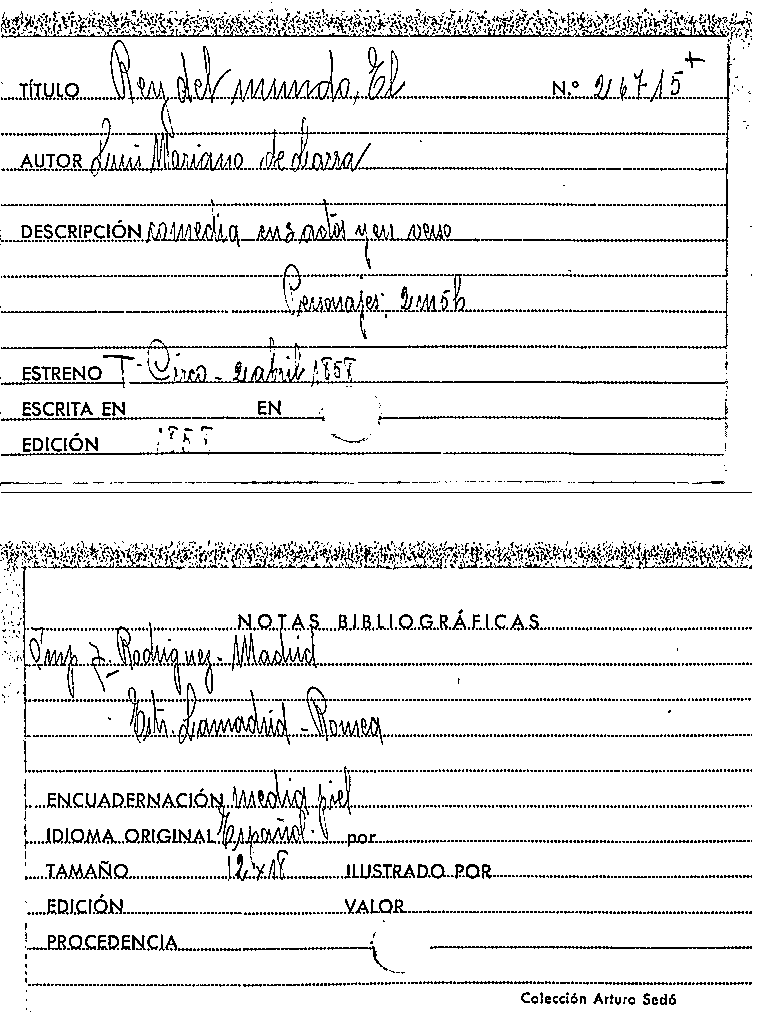 TÍTULO Rey del mundo, El N.º 26715+
AUTOR Luis Mariano de Larra
DESCRIPCIÓN comedia en 3 actos y en verso
Personajes: 2m5h
ESTRENO T. Circo - 2 abril 1858
ESCRITA EN EN
EDICIÓN 1858
NOTAS BIBLIOGRÁFICAS
Imp J. Rodriguez - Madrid
Estr. Lamadrid - Romea
ENCUADERNACIÓN media piel
IDIOMA ORIGINAL Español. por
TAMAÑO 12 x 18 ILUSTRADO POR
EDICIÓN VALOR
PROCEDENCIA
Colección Arturo Sedó